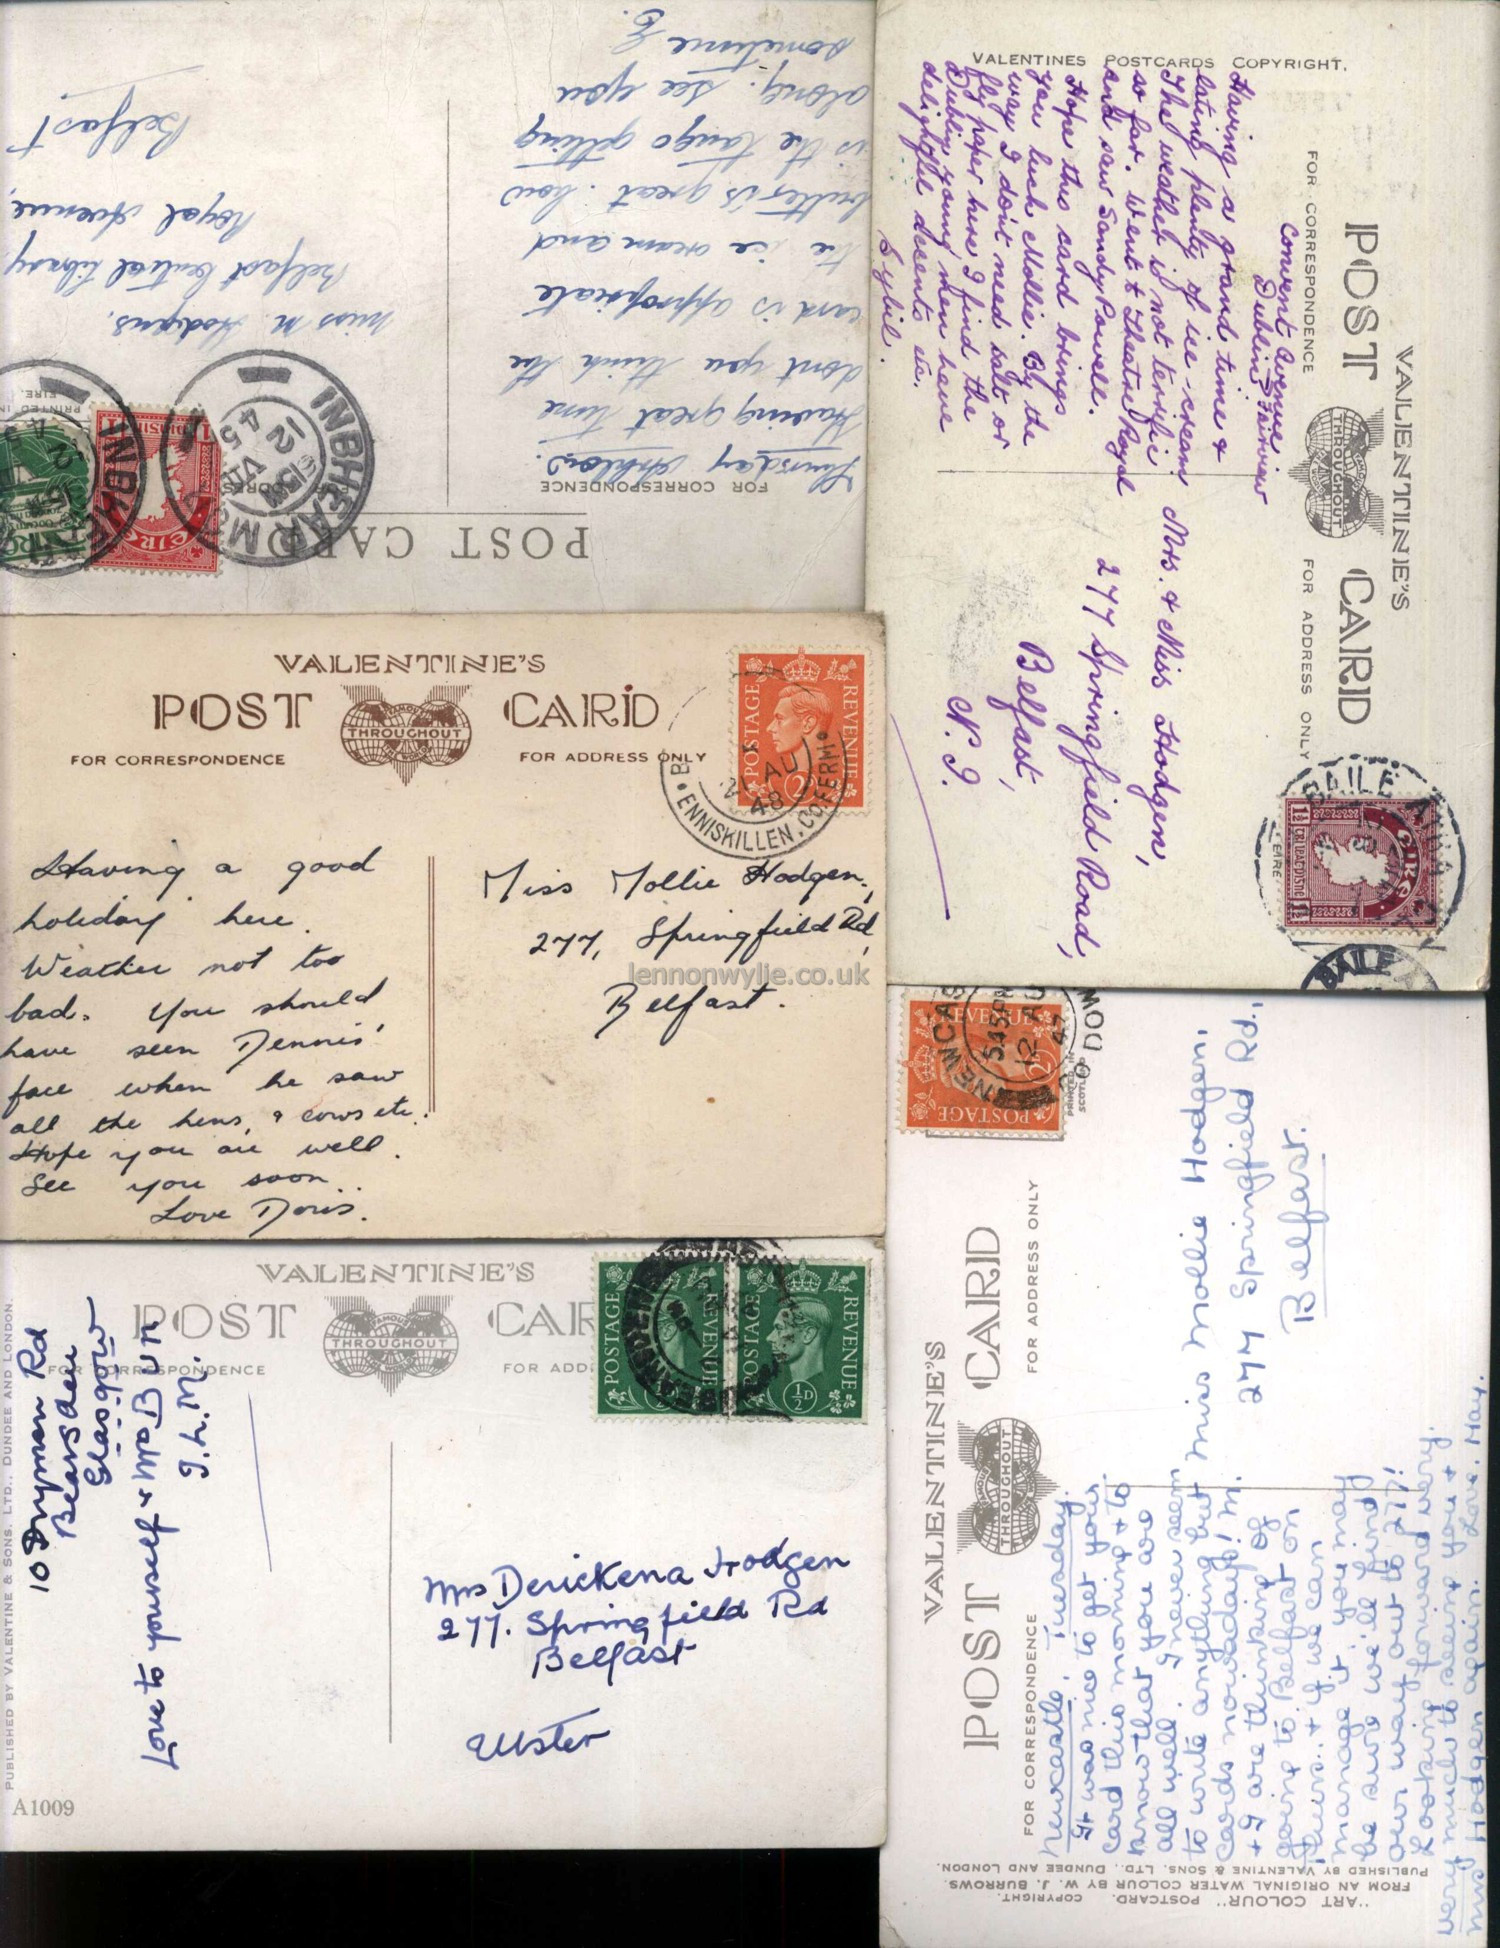 POST CARD
FOR CORRESPONDENCE
Thursday Arklow.
Having great time
dont you think the
card is appropriate
the ice cream and
butter is great. how
is the tango getting
along. See you
sometime
Miss M. Hodgens,
Belfast Central Library,
Royal Avenue,
Belfast
INBHEAR M
12 VII 45
EIRE
PRINTED IN
EIRE.
VALENTINES POSTCARDS COPYRIGHT.
VALENTINE'S
POST CARD
FAMOUS
THROUGHOUT
THE WORLD
FOR CORRESPONDENCE
FOR ADDRESS ONLY
Convent Avenue
Fairview
Dublin
Having a grand time &
lating plenty of ice-cream
The weather is not terrific
so far. Went to Theatre Royal
and saw Sandy Powell.
Hope this card brings
you luck Mollie. By the
way I don't need salt or
fly paper here I find the
Dublin young men have
delightful accents etc.
Sybil.
Mrs. & Miss Hodgen,
277 Springfield Road,
Belfast,
N. I.
BAILE
EIRE
1½
VALENTINE'S
POST CARD
FAMOUS
THROUGHOUT
THE WORLD
FOR CORRESPONDENCE
FOR ADDRESS ONLY
POSTAGE REVENUE
2D
21 AU
48
ENNISKILLEN. CO FERM.
Having a good
holiday here.
Weather not too
bad. You should
have seen Dennis'
face when he saw
all the hens, & cows etc.
Hope you are well.
See you soon.
Love Doris.
Miss Mollie Hodgen,
277, Springfield Rd,
Belfast.
lennonwylie.co.uk
VALENTINE'S
POST CAR
FAMOUS
THROUGHOUT
THE WORLD
FOR CORRESPONDENCE
FOR ADD
POSTAGE REVENUE
POSTAGE REVENUE
½D
10 Drymen Rd
Bearsden
Glasgow
Love to yourself & Mrs Bun
J. L. M.
Mrs Derickena Hodgen
277. Springfield Rd
Belfast
Ulster
PUBLISHED BY VALENTINE & SONS, LTD., DUNDEE AND LONDON.
A1009
VALENTINE'S
POST CARD
FAMOUS
THROUGHOUT
THE WORLD
FOR CORRESPONDENCE
FOR ADDRESS ONLY
POSTAGE REVENUE
NEWCAS
5.45PM
12 AU
47
DOW
PRINTED IN
SCOTLAND
Newcastle, Tuesday.
It was nice to get your
card this morning & to
know that you are
all well. I never seem
to write anything but
cards nowadays! M.
& I are thinking of
going to Belfast on
Thurs. & if we can
manage it you may
be sure we'll find
our way out to 277!
Looking forward very,
very much to seeing you &
Mrs Hodgen again. Love, May.
Miss Mollie Hodgen,
277 Springfield Rd.,
Belfast.
"ART COLOUR" POSTCARD. COPYRIGHT.
FROM AN ORIGINAL WATER COLOUR BY W. J. BURROWS.
PUBLISHED BY VALENTINE & SONS. LTD., DUNDEE AND LONDON.